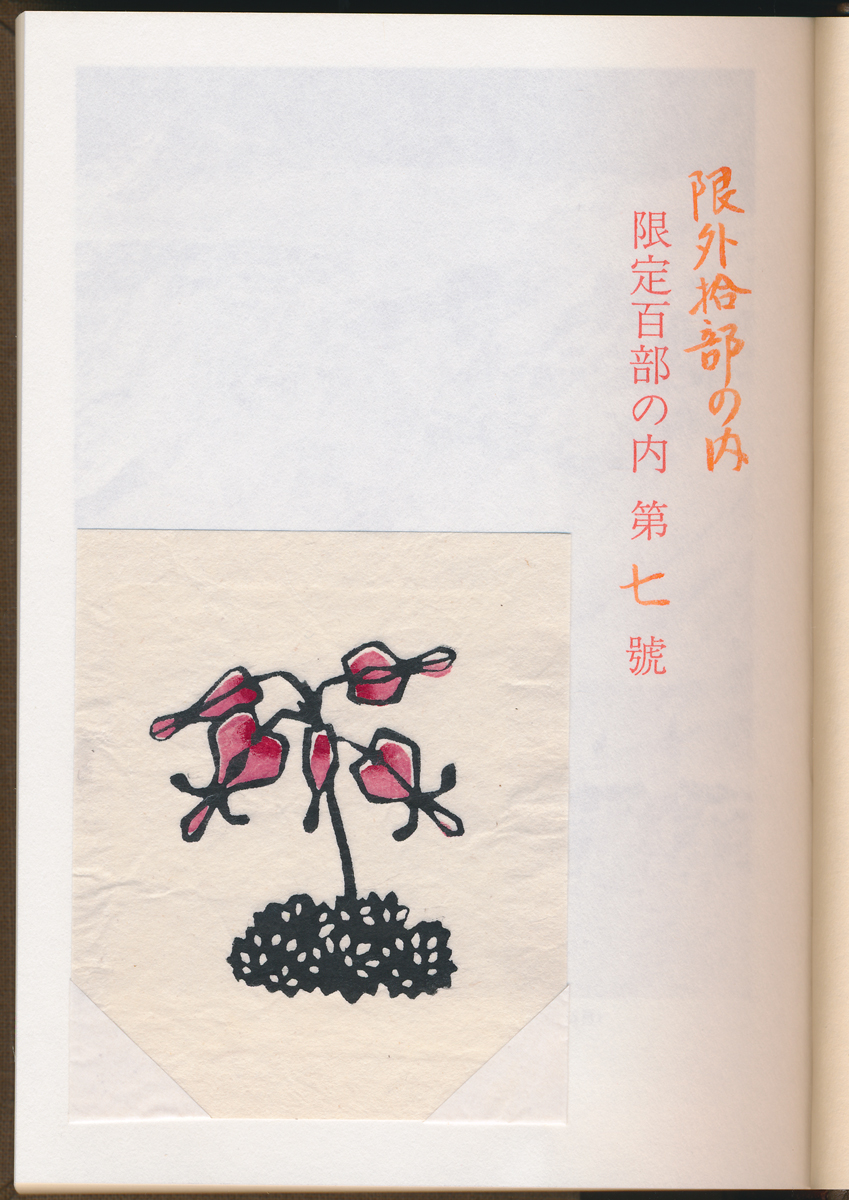 限外拾部の内
限定百部の内 第 七 號